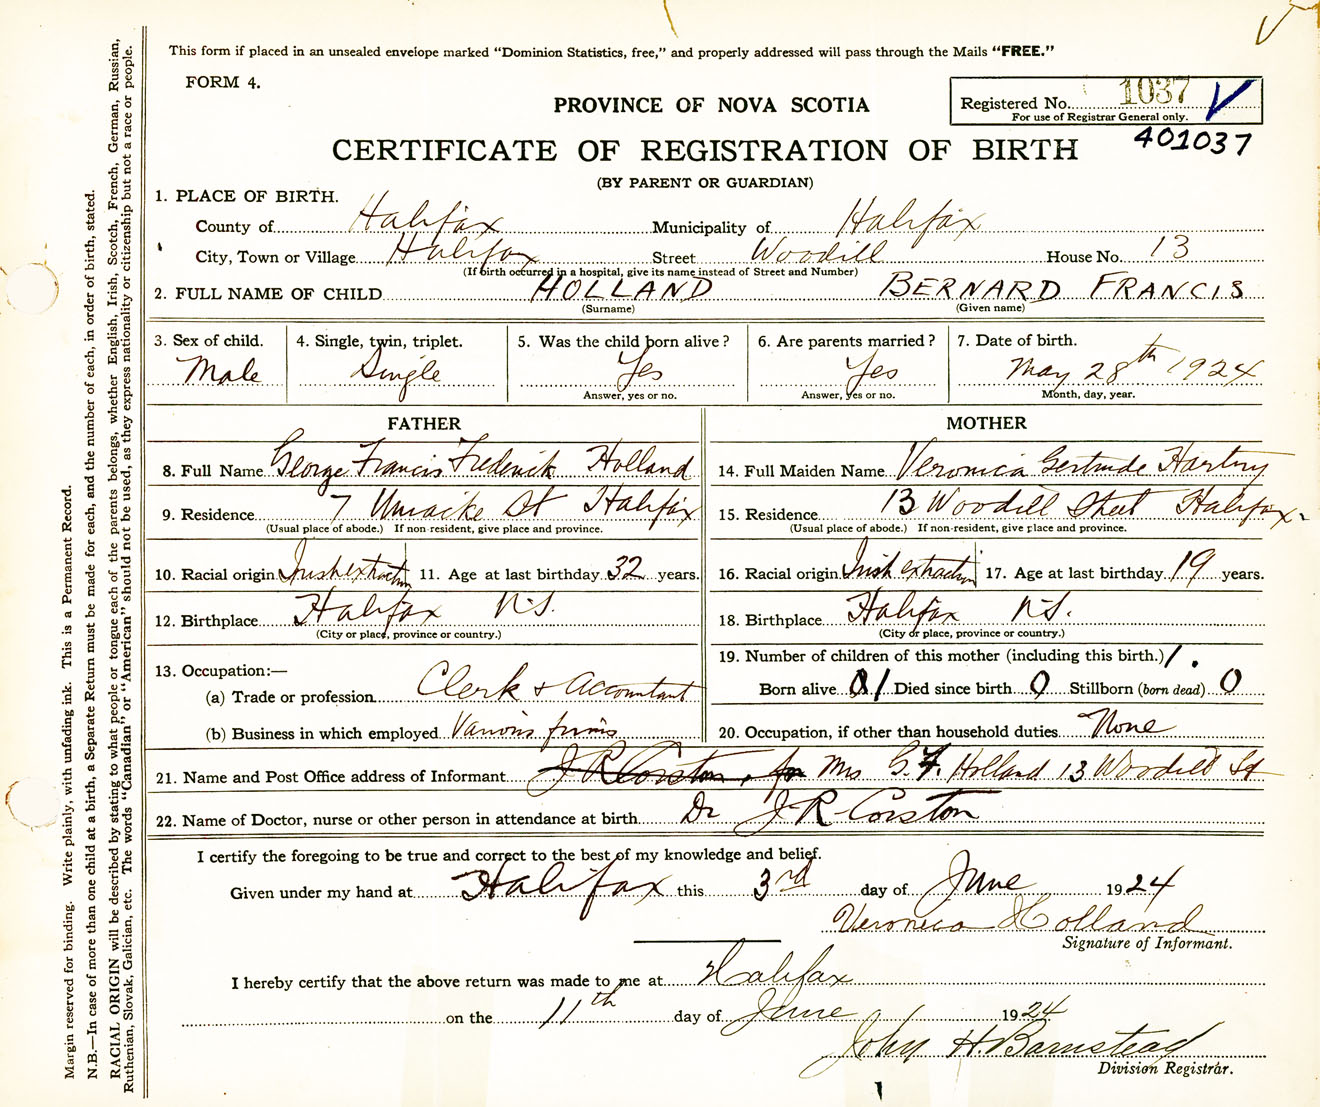 This form if placed in an unsealed envelope marked "Dominion Statistics, free," and properly addressed will pass through the Mails "FREE."
FORM 4.
Registered No. 1037
For use of Registrar General only.
401037
PROVINCE OF NOVA SCOTIA
CERTIFICATE OF REGISTRATION OF BIRTH
(BY PARENT OR GUARDIAN)
1. PLACE OF BIRTH.
County of Halifax Municipality of Halifax
City, Town or Village Halifax Street Woodill House No. 13
(If birth occurred in a hospital, give its name instead of Street and Number)
2. FULL NAME OF CHILD HOLLAND BERNARD FRANCIS
(Surname) (Given name)
3. Sex of child. 4. Single, twin, triplet. 5. Was the child born alive? 6. Are parents married? 7. Date of birth.
Male Single Yes Yes May 28th 1924
Answer, yes or no. Answer, yes or no. Month, day, year.
FATHER MOTHER
8. Full Name George Francis Frederick Holland 14. Full Maiden Name Veronica Gertrude Hartery
9. Residence 7 Uniacke St Halifax 15. Residence 13 Woodill Street Halifax
(Usual place of abode.) If non-resident, give place and province. (Usual place of abode.) If non-resident, give place and province.
10. Racial origin Irish extraction 11. Age at last birthday 32 years. 16. Racial origin Irish extraction 17. Age at last birthday 19 years.
12. Birthplace Halifax N.S. 18. Birthplace Halifax N.S.
(City or place, province or country.) (City or place, province or country.)
13. Occupation:— 19. Number of children of this mother (including this birth.) 1.
(a) Trade or profession Clerk & Accountant Born alive 1 Died since birth 0 Stillborn (born dead) 0
(b) Business in which employed Various firms 20. Occupation, if other than household duties None
21. Name and Post Office address of Informant J R Corston, for Mrs G. F. Holland 13 Woodill St
22. Name of Doctor, nurse or other person in attendance at birth Dr J R Corston
I certify the foregoing to be true and correct to the best of my knowledge and belief.
Given under my hand at Halifax this 3rd day of June 1924
Veronica Holland
Signature of Informant.
I hereby certify that the above return was made to me at Halifax
on the 11th day of June 1924
John H. Barnstead
Division Registrar.
Margin reserved for binding. Write plainly, with unfading ink. This is a Permanent Record.
N.B.—In case of more than one child at a birth, a Separate Return must be made for each, and the number of each, in order of birth, stated.
RACIAL ORIGIN will be described by stating to what people or tongue each of the parents belongs, whether English, Irish, Scotch, French, German, Russian,
Ruthenian, Slovak, Galician, etc. The words "Canadian" or "American" should not be used, as they express nationality or citizenship but not a race or people.